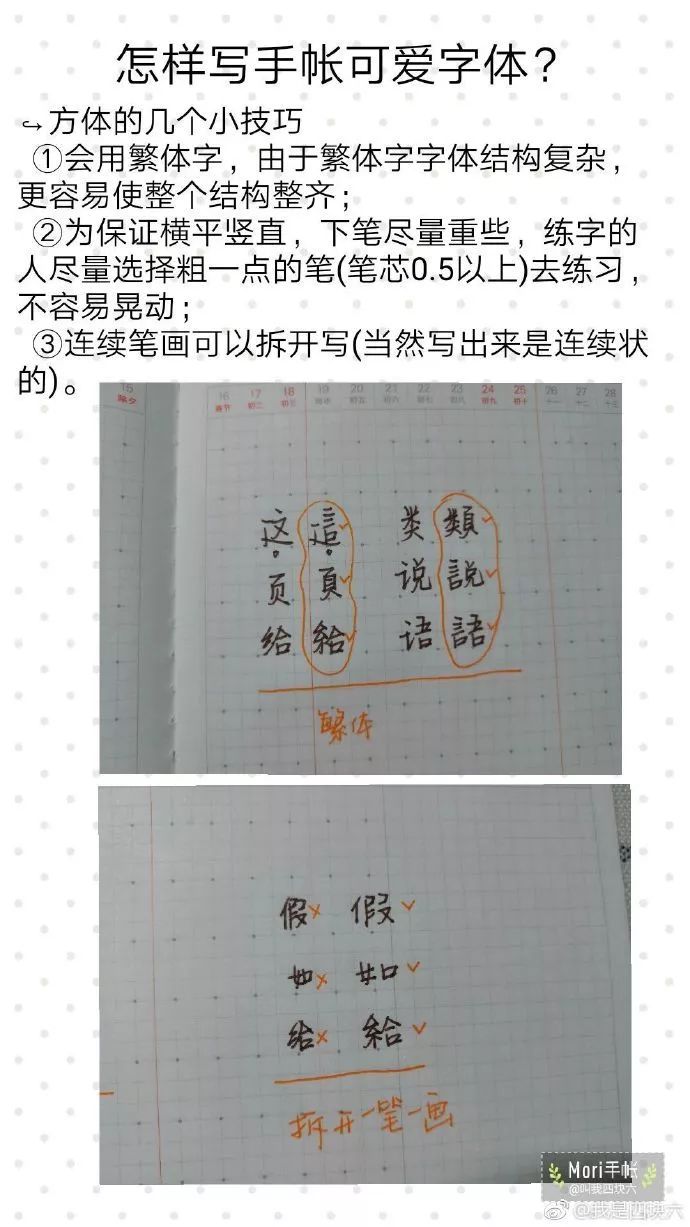 怎样写手帐可爱字体？
↪方体的几个小技巧
①会用繁体字，由于繁体字字体结构复杂，
更容易使整个结构整齐；
②为保证横平竖直，下笔尽量重些，练字的
人尽量选择粗一点的笔(笔芯0.5以上)去练习，
不容易晃动；
③连续笔画可以拆开写(当然写出来是连续状
的)。
15 16 17 18 19 20 21 22 23 24 25 26 27 28
除夕 春节 初二 初三 雨水 初五 初六 初七 初八 初九 初十 十一 十二 十三
这 這 类 類
页 頁 说 説
给 給 语 語
繁体
假× 假✓
如× 如✓
给× 給✓
拆开一笔一画
Mori手帐
@叫我四块六
@我是四块六